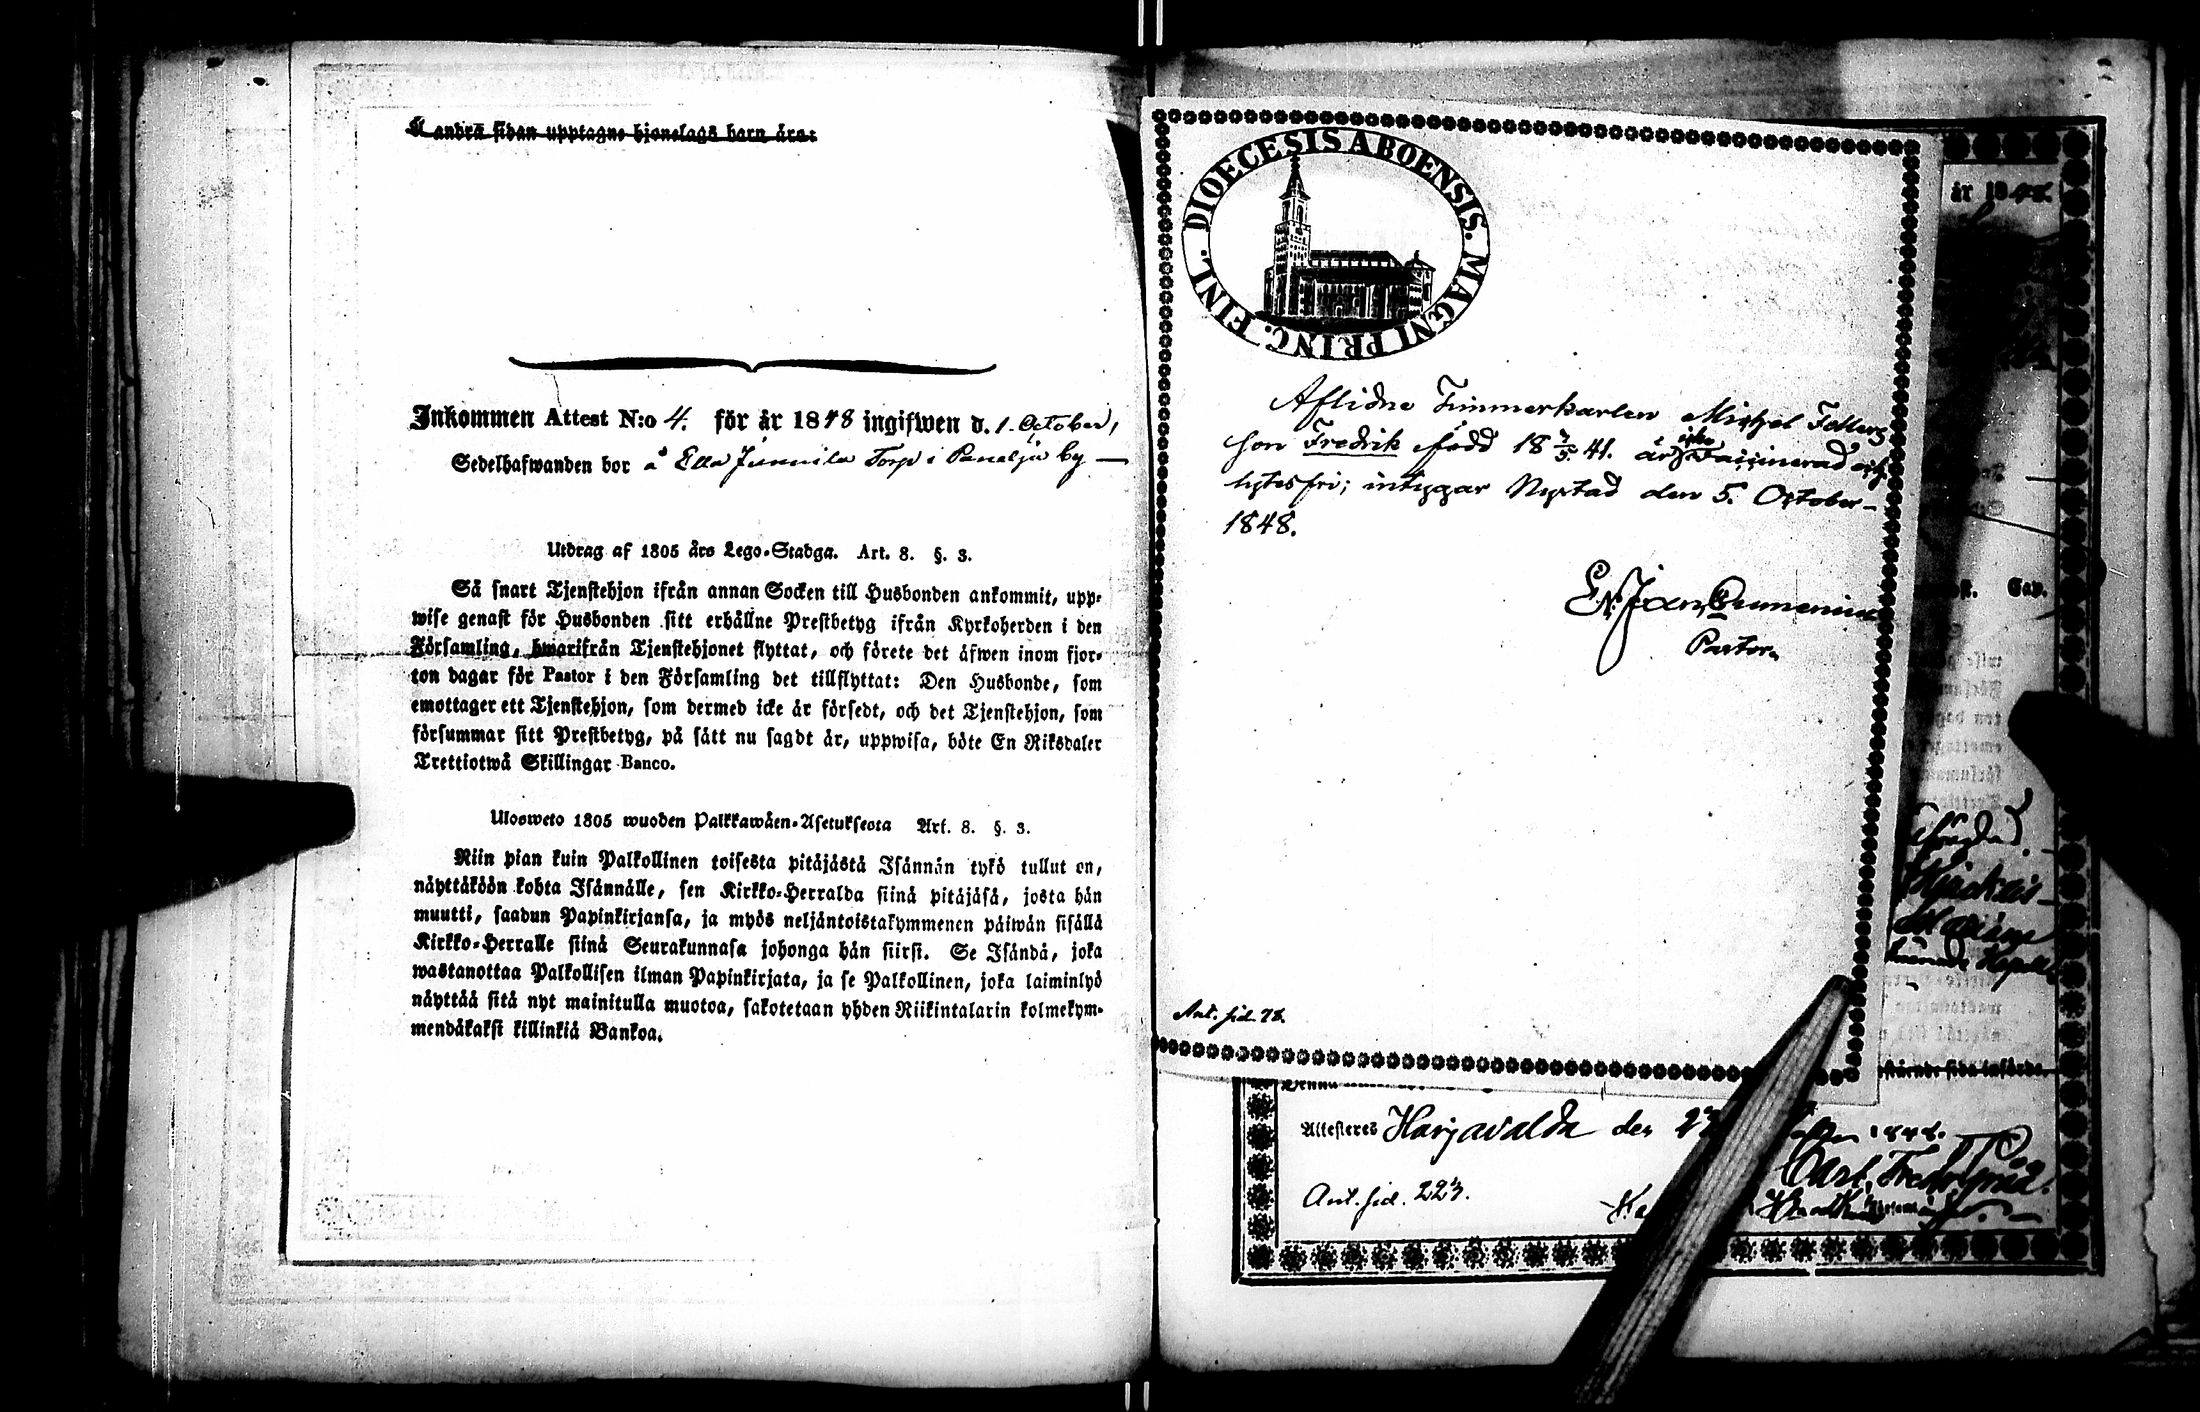 Å andra sidan upptagne hjonelags barn äro:
Inkommen Attest N:o 4. för år 1848 ingifwen d. 1. October,
Sedelhafwanden bor å Ella Junnila Torp i Panelja by —
Utdrag af 1805 års Lego-Stadga. Art. 8. §. 3.
Så snart Tjenstehjon ifrån annan Socken till Husbonden ankommit, upp-
wise genast för Husbonden sitt erhållne Prestbetyg ifrån Kyrkoherden i den
Församling, hwarifrån Tjenstehjonet flyttat, och förete det äfwen inom fjor-
ton dagar för Pastor i den Församling det tillflyttat: Den Husbonde, som
emottager ett Tjenstehjon, som dermed icke är försedt, och det Tjenstehjon, som
försummar sitt Prestbetyg, på sätt nu sagdt är, uppwisa, böte En Riksdaler
Trettiotwå Skillingar Banco.
Ulosweto 1805 wuoden Palkkawäen-Asetuksesta Art. 8. §. 3.
Niin pian kuin Palkollinen toisesta pitäjästä Isännän tykö tullut on,
näyttäköön kohta Isännälle, sen Kirkko-Herralda siinä pitäjäsä, josta hän
muutti, saadun Papinkirjansa, ja myös neljäntoistakymmenen päiwän sisällä
Kirkko-Herralle siinä Seurakunnasa johonga hän siirsi. Se Isändä, joka
wastanottaa Palkollisen ilman Papinkirjata, ja se Palkollinen, joka laiminlyö
näyttää sitä nyt mainitulla muotoa, sakotetaan yhden Riikintalarin kolmekym-
mendäkaksi killinkiä Bankoa.
DIOECESIS ABOENSIS. MAGNI PRINC. FINL.
Aflidne Timmerkarlen Michel
son Fredrik född 18 7/5 41. är icke vaccinerad och
lytesfri; intygar Nystad den 5. October
1848.
Pastor.
Ant. sid. 78.
år 1848
Cap.
Attesteres Harjavalda den
Ant. sid. 223.
Carl Fredr.